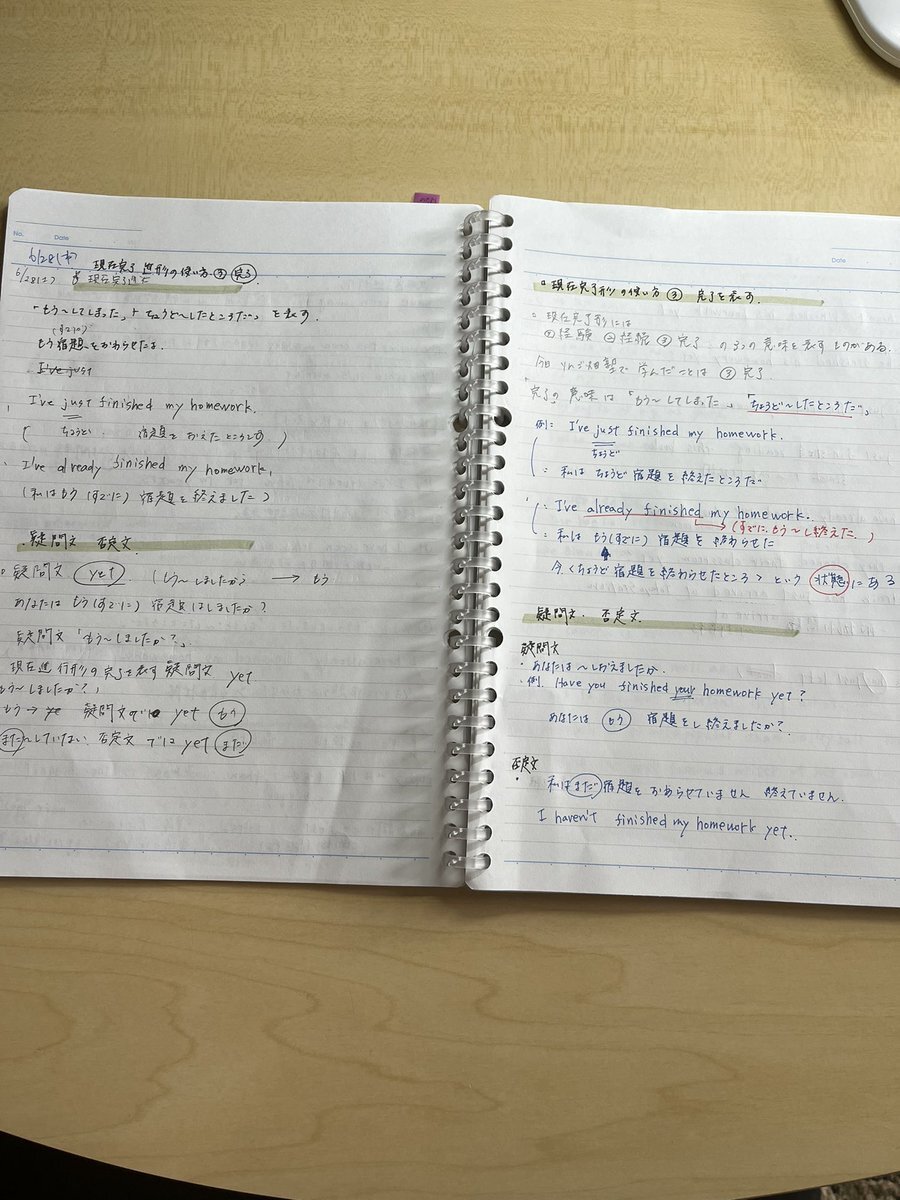 No.
Date
6/28(木)
現在完了進形の使い方 ③ 完了
「もう〜してしまった」「ちょうど〜したところだ」を表す.
(すでに)
もう宿題をおわらせたよ.
I've just
I've just finished my homework.
( ちょうど 宿題を おえたところです )
I've already finished my homework.
(私はもう(すでに) 宿題を終えました)
疑問文 否定文
疑問文 yet (もう〜しましたか → もう
あなたは もう(すでに) 宿題はしましたか?
疑問文「もう〜しましたか?」
現在進行形の完了を表す疑問文 yet
もう〜しましたか?」
もう→ 疑問文では yet もう
まだ〜していない 否定文では yet まだ
Date
現在完了形の使い方 ③ 完了を表す.
現在完了形には
経験 ③完了 の3つの意味を表すものがある.
今日 学んだことは ③ 完了.
「完了」の意味は「もう〜してしまった」「ちょうど〜したところだ」
例: I've just finished my homework.
ちょうど
: 私は ちょうど 宿題を終えたところだ
: I've already finished my homework.
(すでに. もう〜し終えた.)
: 私は もう(すでに) 宿題を 終わらせた
今 <ちょうど 宿題を終わらせたところ> という 状態にある
疑問文. 否定文
疑問文
・あなたは〜しおえましたか.
・例. Have you finished your homework yet?
あなたは もう 宿題をし終えましたか?
否定文
私はまだ宿題を おわらせていません 終えていません.
I haven't finished my homework yet.